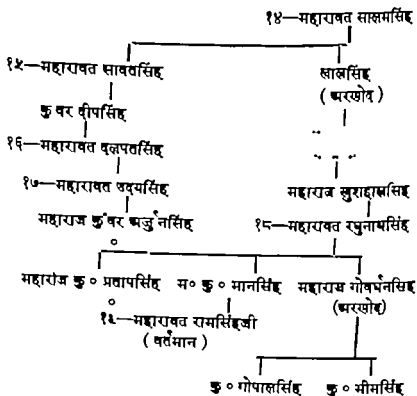 १४—महारावत सालमसिंह
१५—महारावत सावतसिंह
लालसिंह
(अरणोद)
कुवर दीपसिंह
१६—महारावत दलपतसिंह
१७—महारावत उदयसिंह
महाराज खुशहालसिंह
महाराज कुँवर अर्जुनसिंह
१८—महारावत रघुनाथसिंह
महाराज कु० प्रतापसिंह
म० कु० मानसिंह
महाराज गोवर्धनसिंह
(अरणोद)
१९—महारावत रामसिंहजी
(वर्तमान)
कु० गोपालसिंह
कु० भीमसिंह